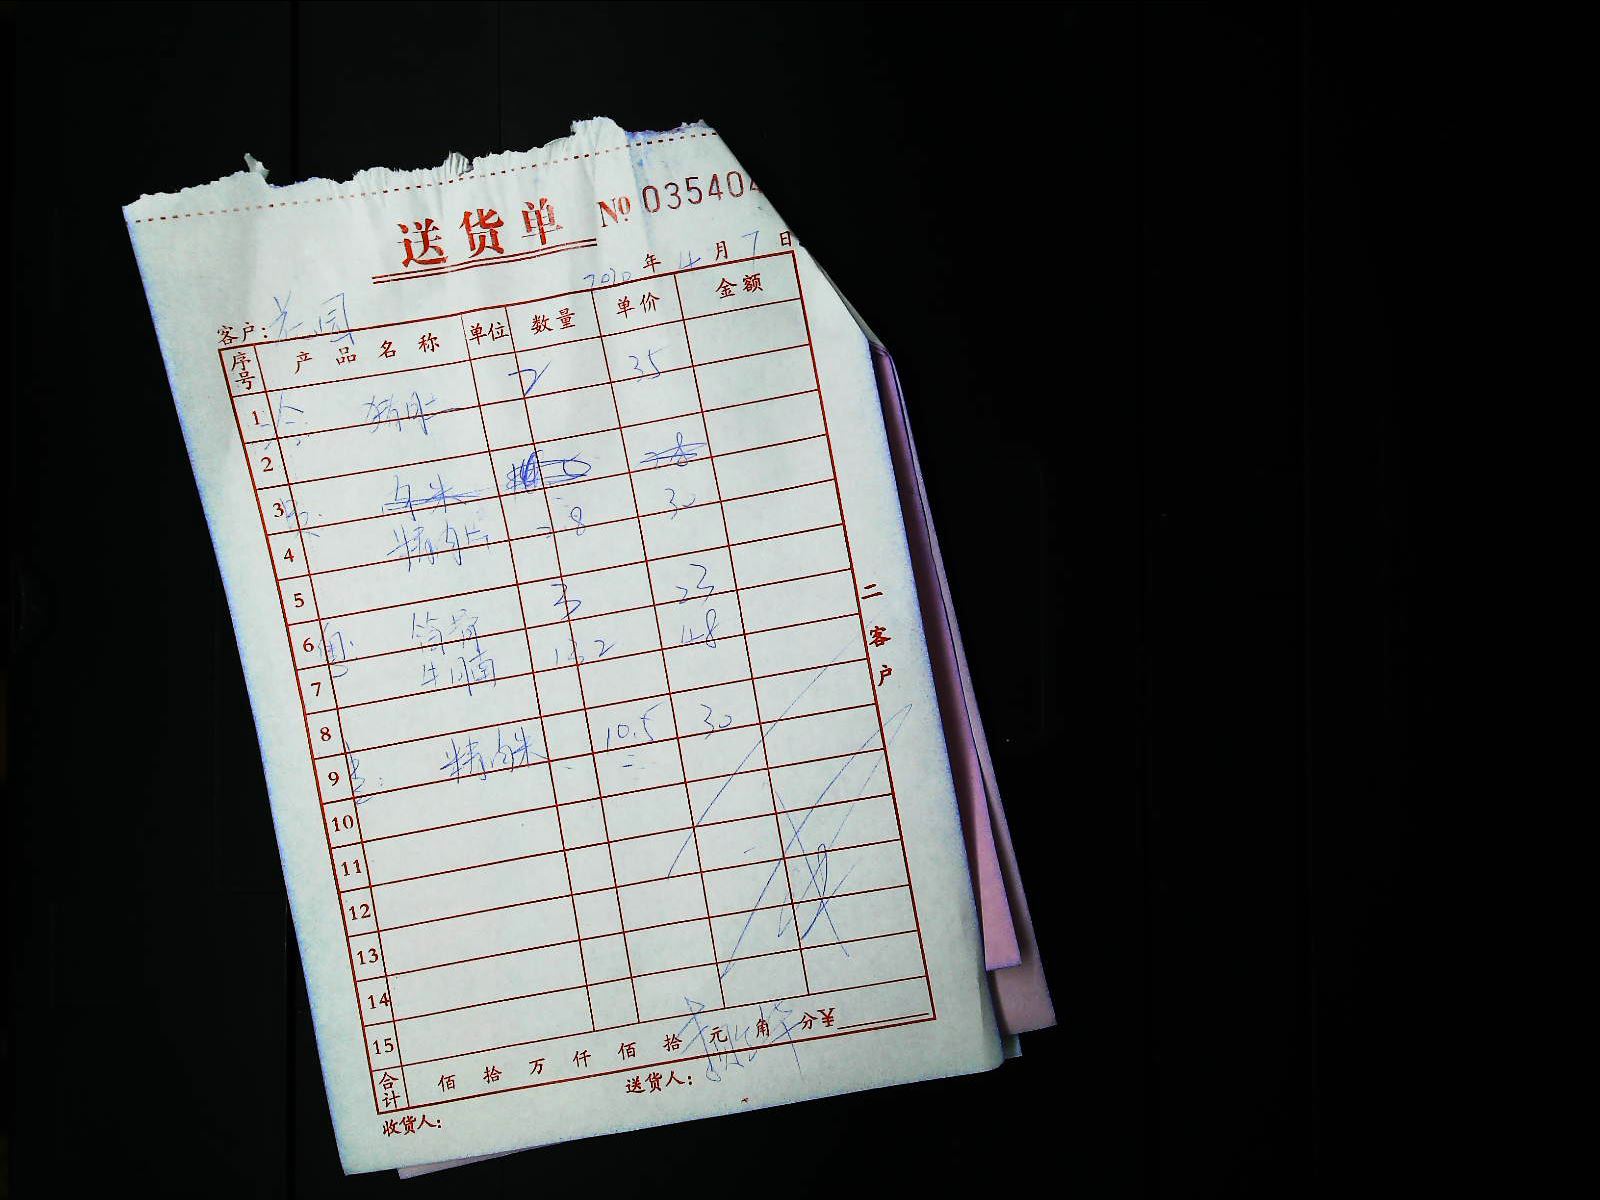 送货单 № 035404
2020年4月7日
客户：
序号 产品名称 单位 数量 单价 金额
1 2 35
2
3 肉米 28
4 精肉片 2.8 30
5
6 筒骨 3 23
7 牛腩 13.2 48
8
9 精肉米 10.5 30
10
11
12
13
14
15
合计 佰 拾 万 仟 佰 拾 元 角 分 ¥
收货人： 送货人：
二 客户